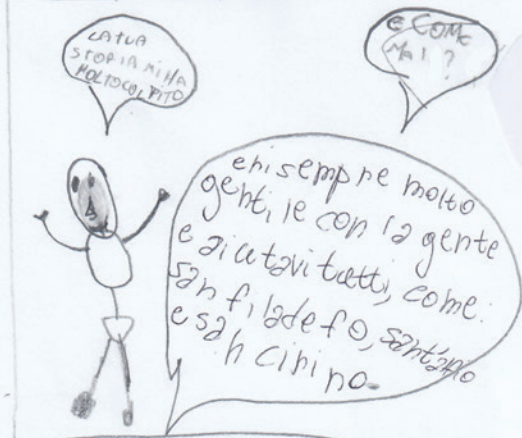 LA TUA
STORIA MI HA
MOLTO COLPITO
E COME
MAI ?
eri sempre molto
gentile con la gente
e aiutavi tutti, come:
san filadefo, sant'alfio
e san cirino.